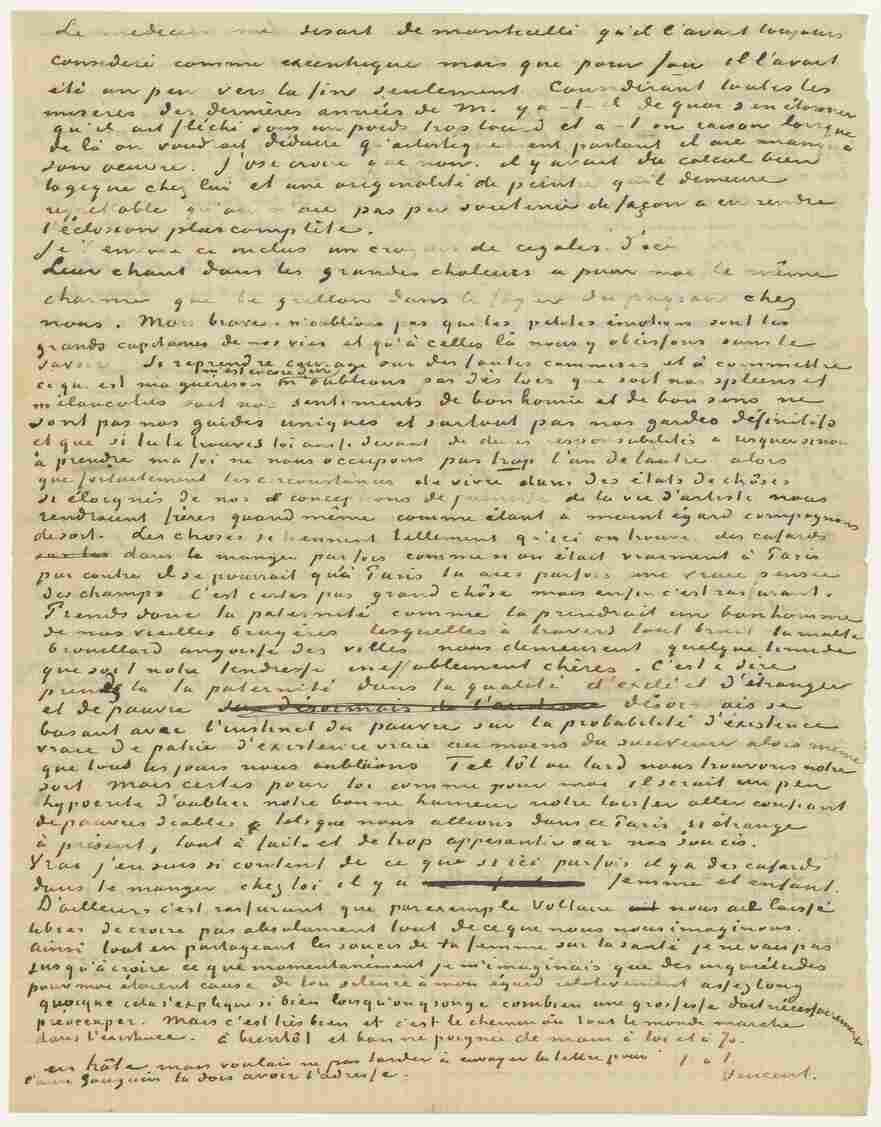 Le medecin me disait de monticelli qu'il l'avait toujours
consideré comme excentrique mais que pour fou il l'avait
été un peu vers la fin seulement Considerant toutes les
miseres des dernières années de M. y a-t-il de quoi s'en étonner
qu'il ait fléchi sous un poids trop lourd et a-t-on raison lorsque
de là on voudrait déduire qu'artistiquement parlant il ait manqué
son oeuvre. J'ose croire que non. il y avait du calcul bien
logique chez lui et une originalité de peintre qu'il demeure
regrettable qu'on n'aie pas pu soutenir de façon a en rendre
l'éclosion plus complète.
Je t'envoie ce inclus un croquis de cigales d'ici
Leur chant dans les grandes chaleurs a pour moi le même
charme que le grillon dans le foyer du paysan chez
nous. Mon brave. n'oublions pas que les petites émotions sont les
grands capitaines de nos vies et qu'à celles là nous y obeissons sans le
savoir Si reprendre courage sur des fautes commises et à commettre
ce qui est ma guerison m'est encore dur n'oublions pas dès lors que soit nos spleens et
mélancolies soit nos sentiments de bonhomie et de bon sens ne
sont pas nos guides uniques et surtout pas nos gardes définitifs
et que si tu te trouves toi aussi devant de dures responsabilités a risquer sinon
à prendre ma foi ne nous occupons pas trop l'un de l'autre alors
que fortuitement les circonstances de vivre dans des états de choses
si eloignés de nos conceptions de jeunesse de la vie d'artiste nous
rendraient frères quand même comme étant à maint égard compagnons
de sort. Les choses se tiennent tellement qu'ici on trouve des cafards
sur les dans le manger parfois comme si on était vraiment à Paris
par contre il se pourrait qu'à Paris tu aies parfois une vraie pensée
des champs C'est certes pas grand chôse mais enfin c'est rassurant.
Prends donc ta paternité comme la prendrait un bonhomme
de nos vieilles bruyères lesquelles à travers tout bruit tumulte
brouillard angoisse des villes nous demeurent quelque timide
que soit notre tendresse ineffablement chères. C'est à dire
prends la ta paternité dans ta qualité d'exilé et d'étranger
et de pauvre désormais se
basant avec l'instinct du pauvre sur la probabilité d'existence
vraie de patrie d'existence vraie au moins du souvenir alors même
que tous les jours nous oublions Tel tôt ou tard nous trouvons notre
sort mais certes pour toi comme pour moi il serait un peu
hypocrite d'oublier notre bonne humeur notre laisser aller confiant
de pauvres diables lorsque nous allions dans ce Paris si étrange
à présent, tout à fait et de trop appesantir sur nos soucis.
Vrai j'en suis si content de ce que si ici parfois il y a des cafards
dans le manger chez toi il y a femme et enfant.
D'ailleurs c'est rassurant que par exemple Voltaire nous ait laissé
libres de croire pas absolument tout de ce que nous nous imaginons.
Ainsi tout en partageant les soucis de ta femme sur ta santé je ne vais pas
jusqu'à croire ce que momentanément je m'imaginais que des inquiétudes
pour moi étaient cause de ton silence à mon égard relativement assez long
quoique cela s'explique si bien lorsqu'on y songe combien une grossesse doit nécessairement
préoccuper. Mais c'est très bien et c'est le chemin où tout le monde marche
dans l'existence. à bientôt et bonne poignée de main à toi et à Jo.
en hâte, mais voulais ne pas tarder à envoyer la lettre pour
l'ami Gauguin tu dois avoir l'adresse. Vincent.